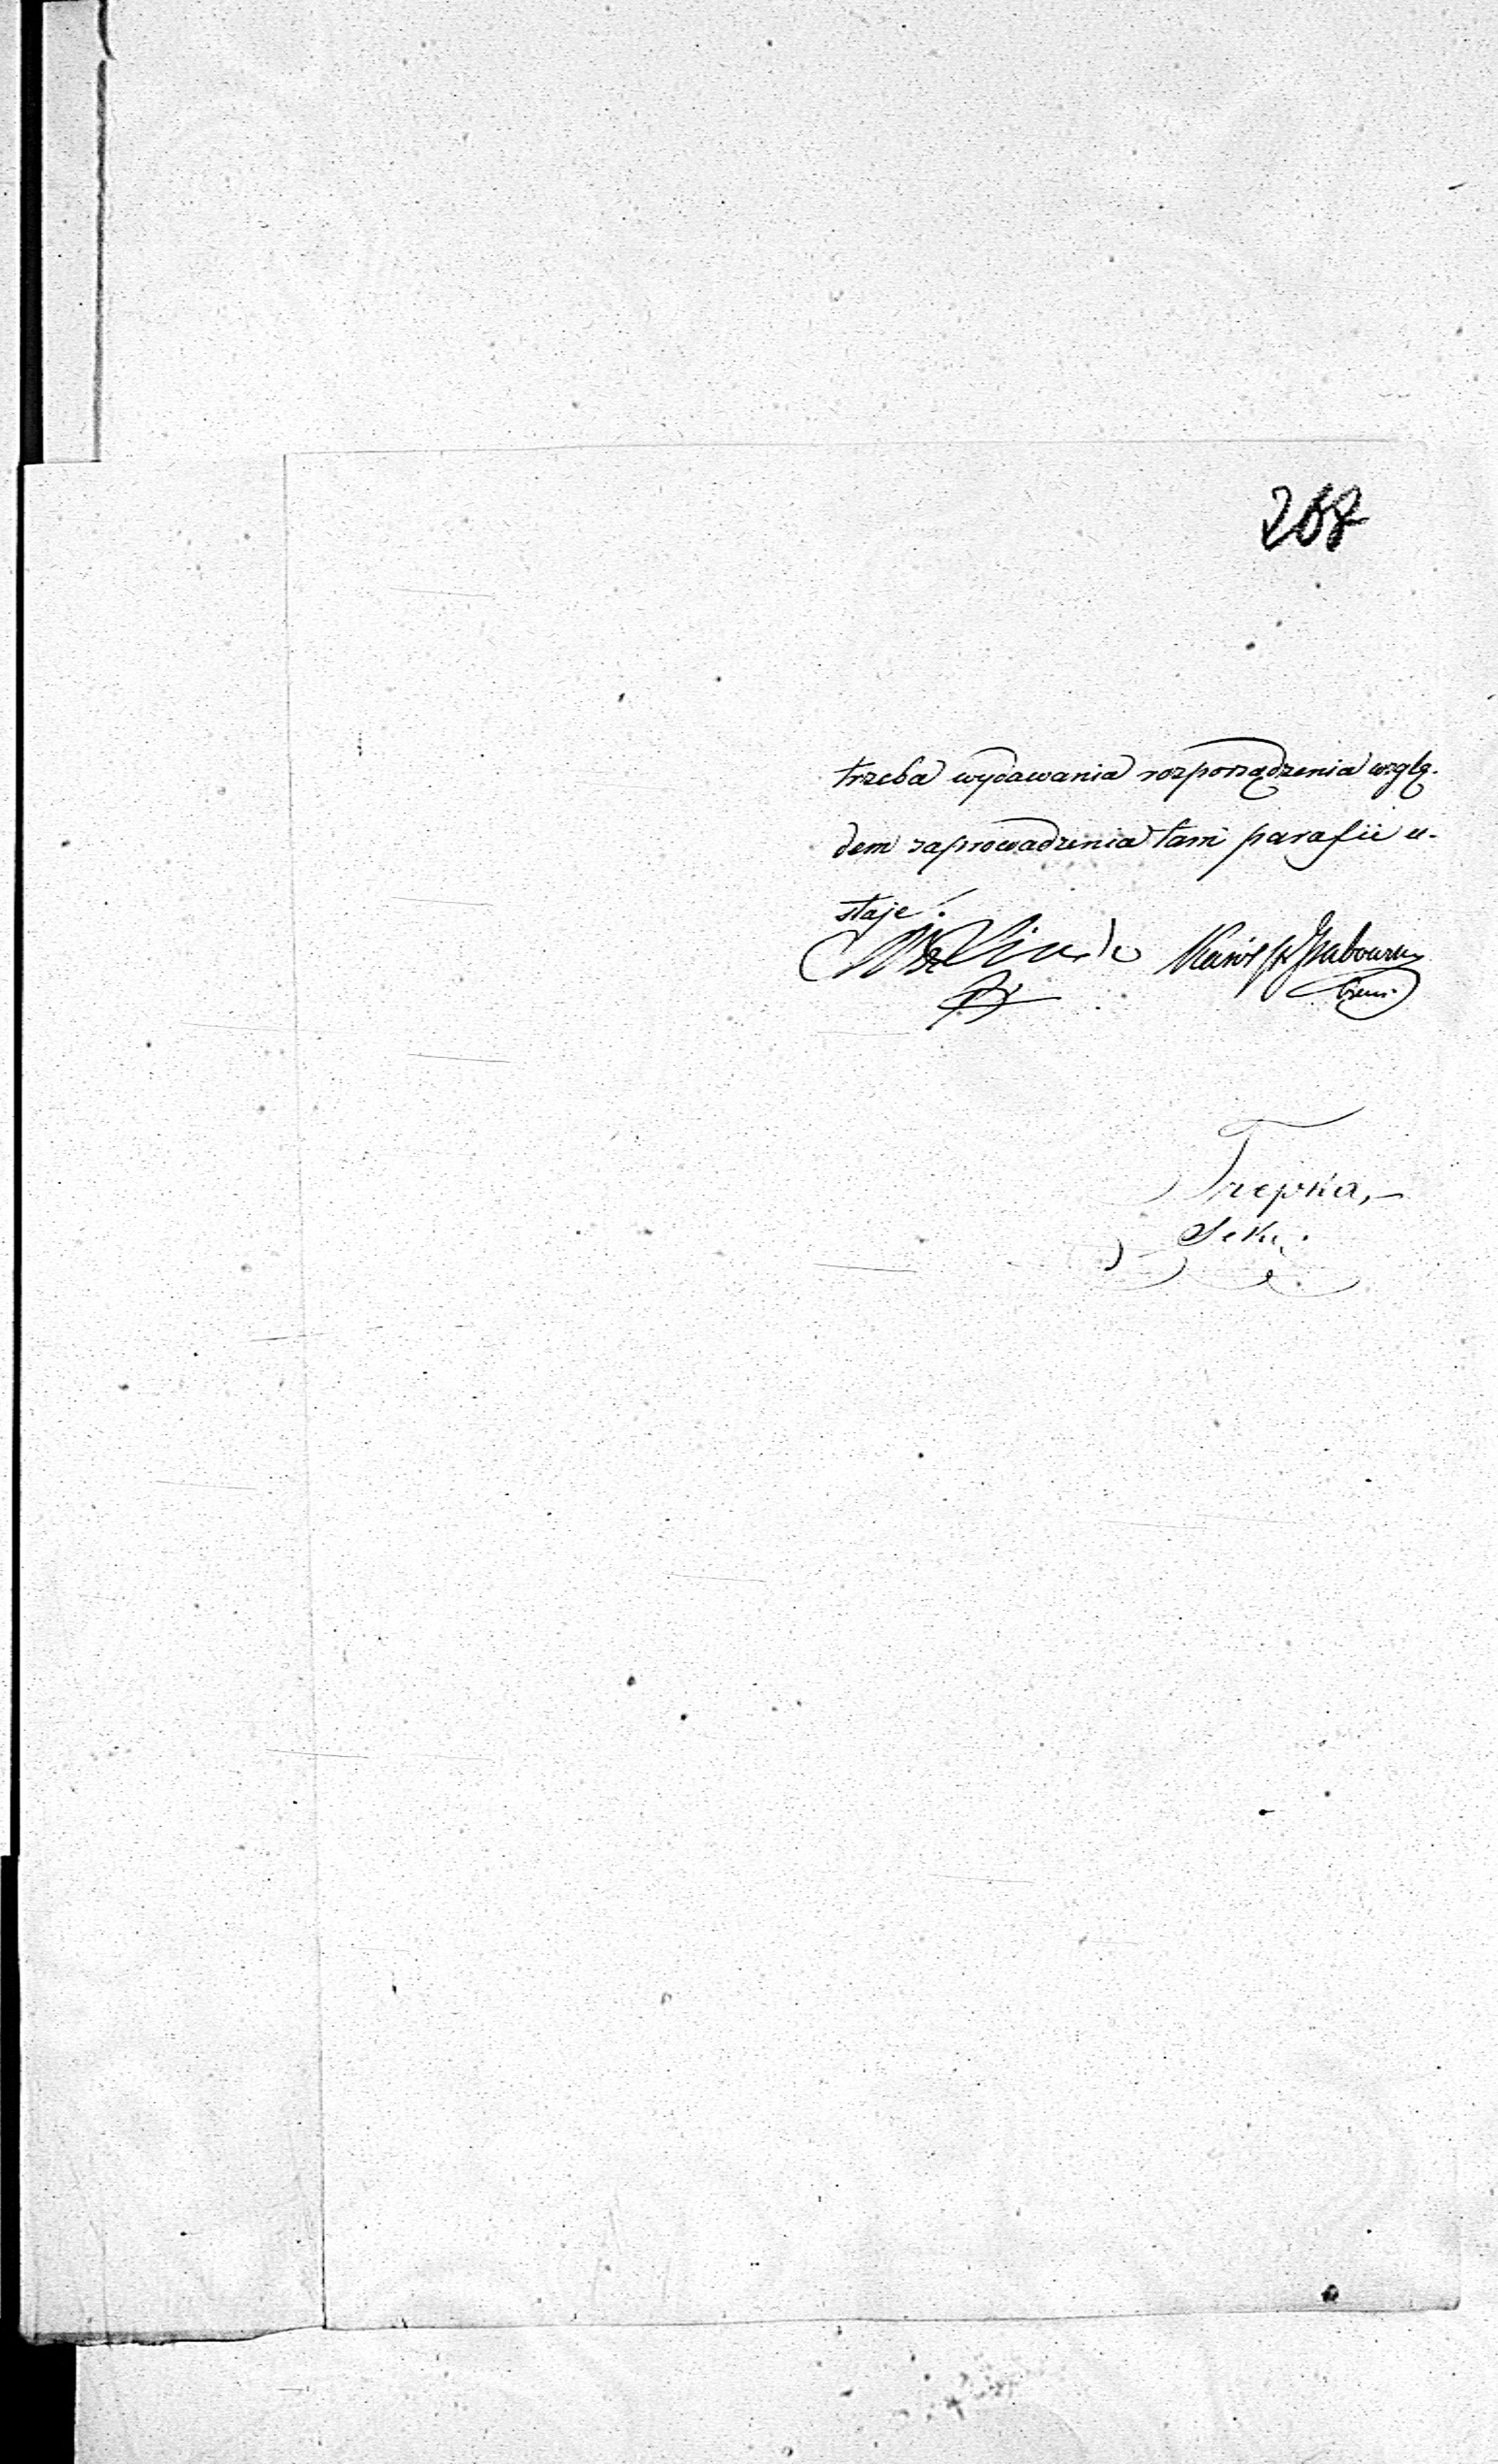 268
trzeba wydawania rozporządzenia wzglę-
dem zaprowadzenia tam parafii u-
staje.
Trepka,
Sekr.